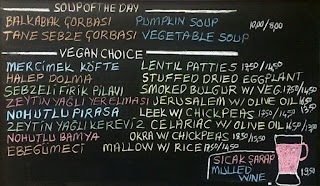 SOUP OF THE DAY
BALKABAK ÇORBASI PUMPKIN SOUP
TANE SEBZE ÇORBASI VEGETABLE SOUP 10,00/8.00
VEGAN CHOICE
MERCIMEK KÖFTE LENTIL PATTIES 17.50/14.50
HALEP DOLMA STUFFED DRIED EGGPLANT
SEBZELİ FİRİK PİLAVI SMOKED BULGUR W/ VEG. 17.50/14.50
ZEYTİN YAĞLI YERELMASI JERUSALEM W/ OLIVE OIL
NOHUTLU PIRASA LEEK W/ CHICKPEAS
ZEYTİN YAĞLI KEREVİZ CELARIAC W/ OLIVE OIL
NOHUTLU BAMYA OKRA W/ CHICKPEAS
EBEGÜMECİ MALLOW W/ RICE 17.50/14.50
SICAK ŞARAP
MULLED
WINE